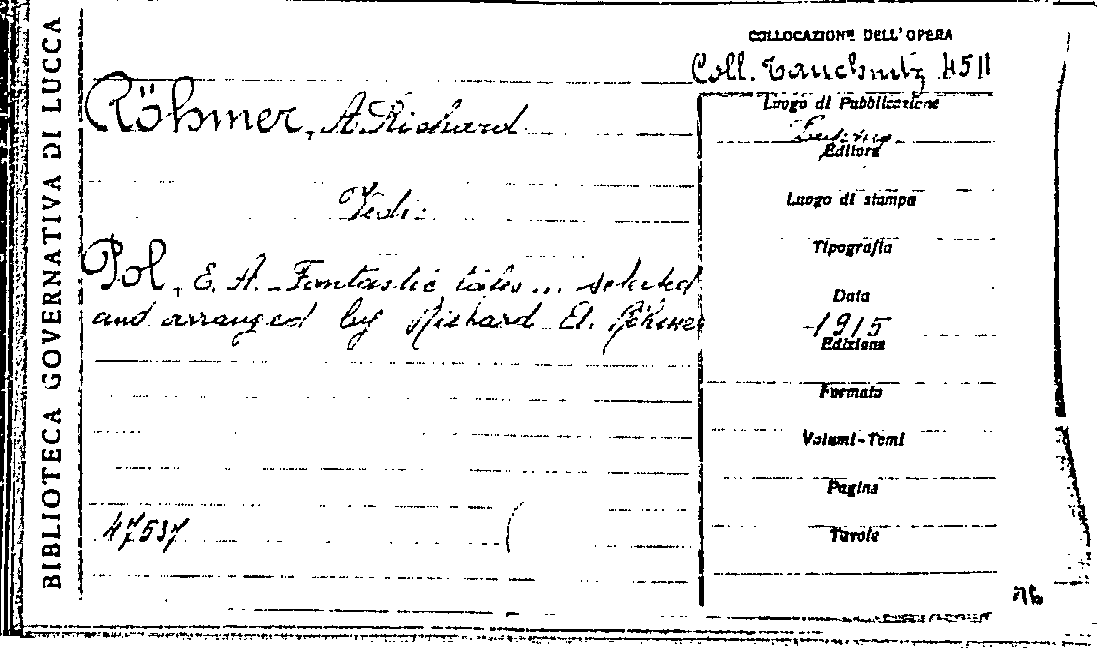 BIBLIOTECA GOVERNATIVA DI LUCCA
COLLOCAZIONE DELL'OPERA
Coll. Tauchnitz 4511
Röhmer, A. Richard
Vedi:
Pol, E. A. - Fantastic tales... selected
and arranged by Richard A. Röhmer
47537
Luogo di Pubblicazione
Editore
Luogo di stampa
Tipografia
Data
1915
Edizione
Formato
Volumi-Tomi
Pagine
Tavole